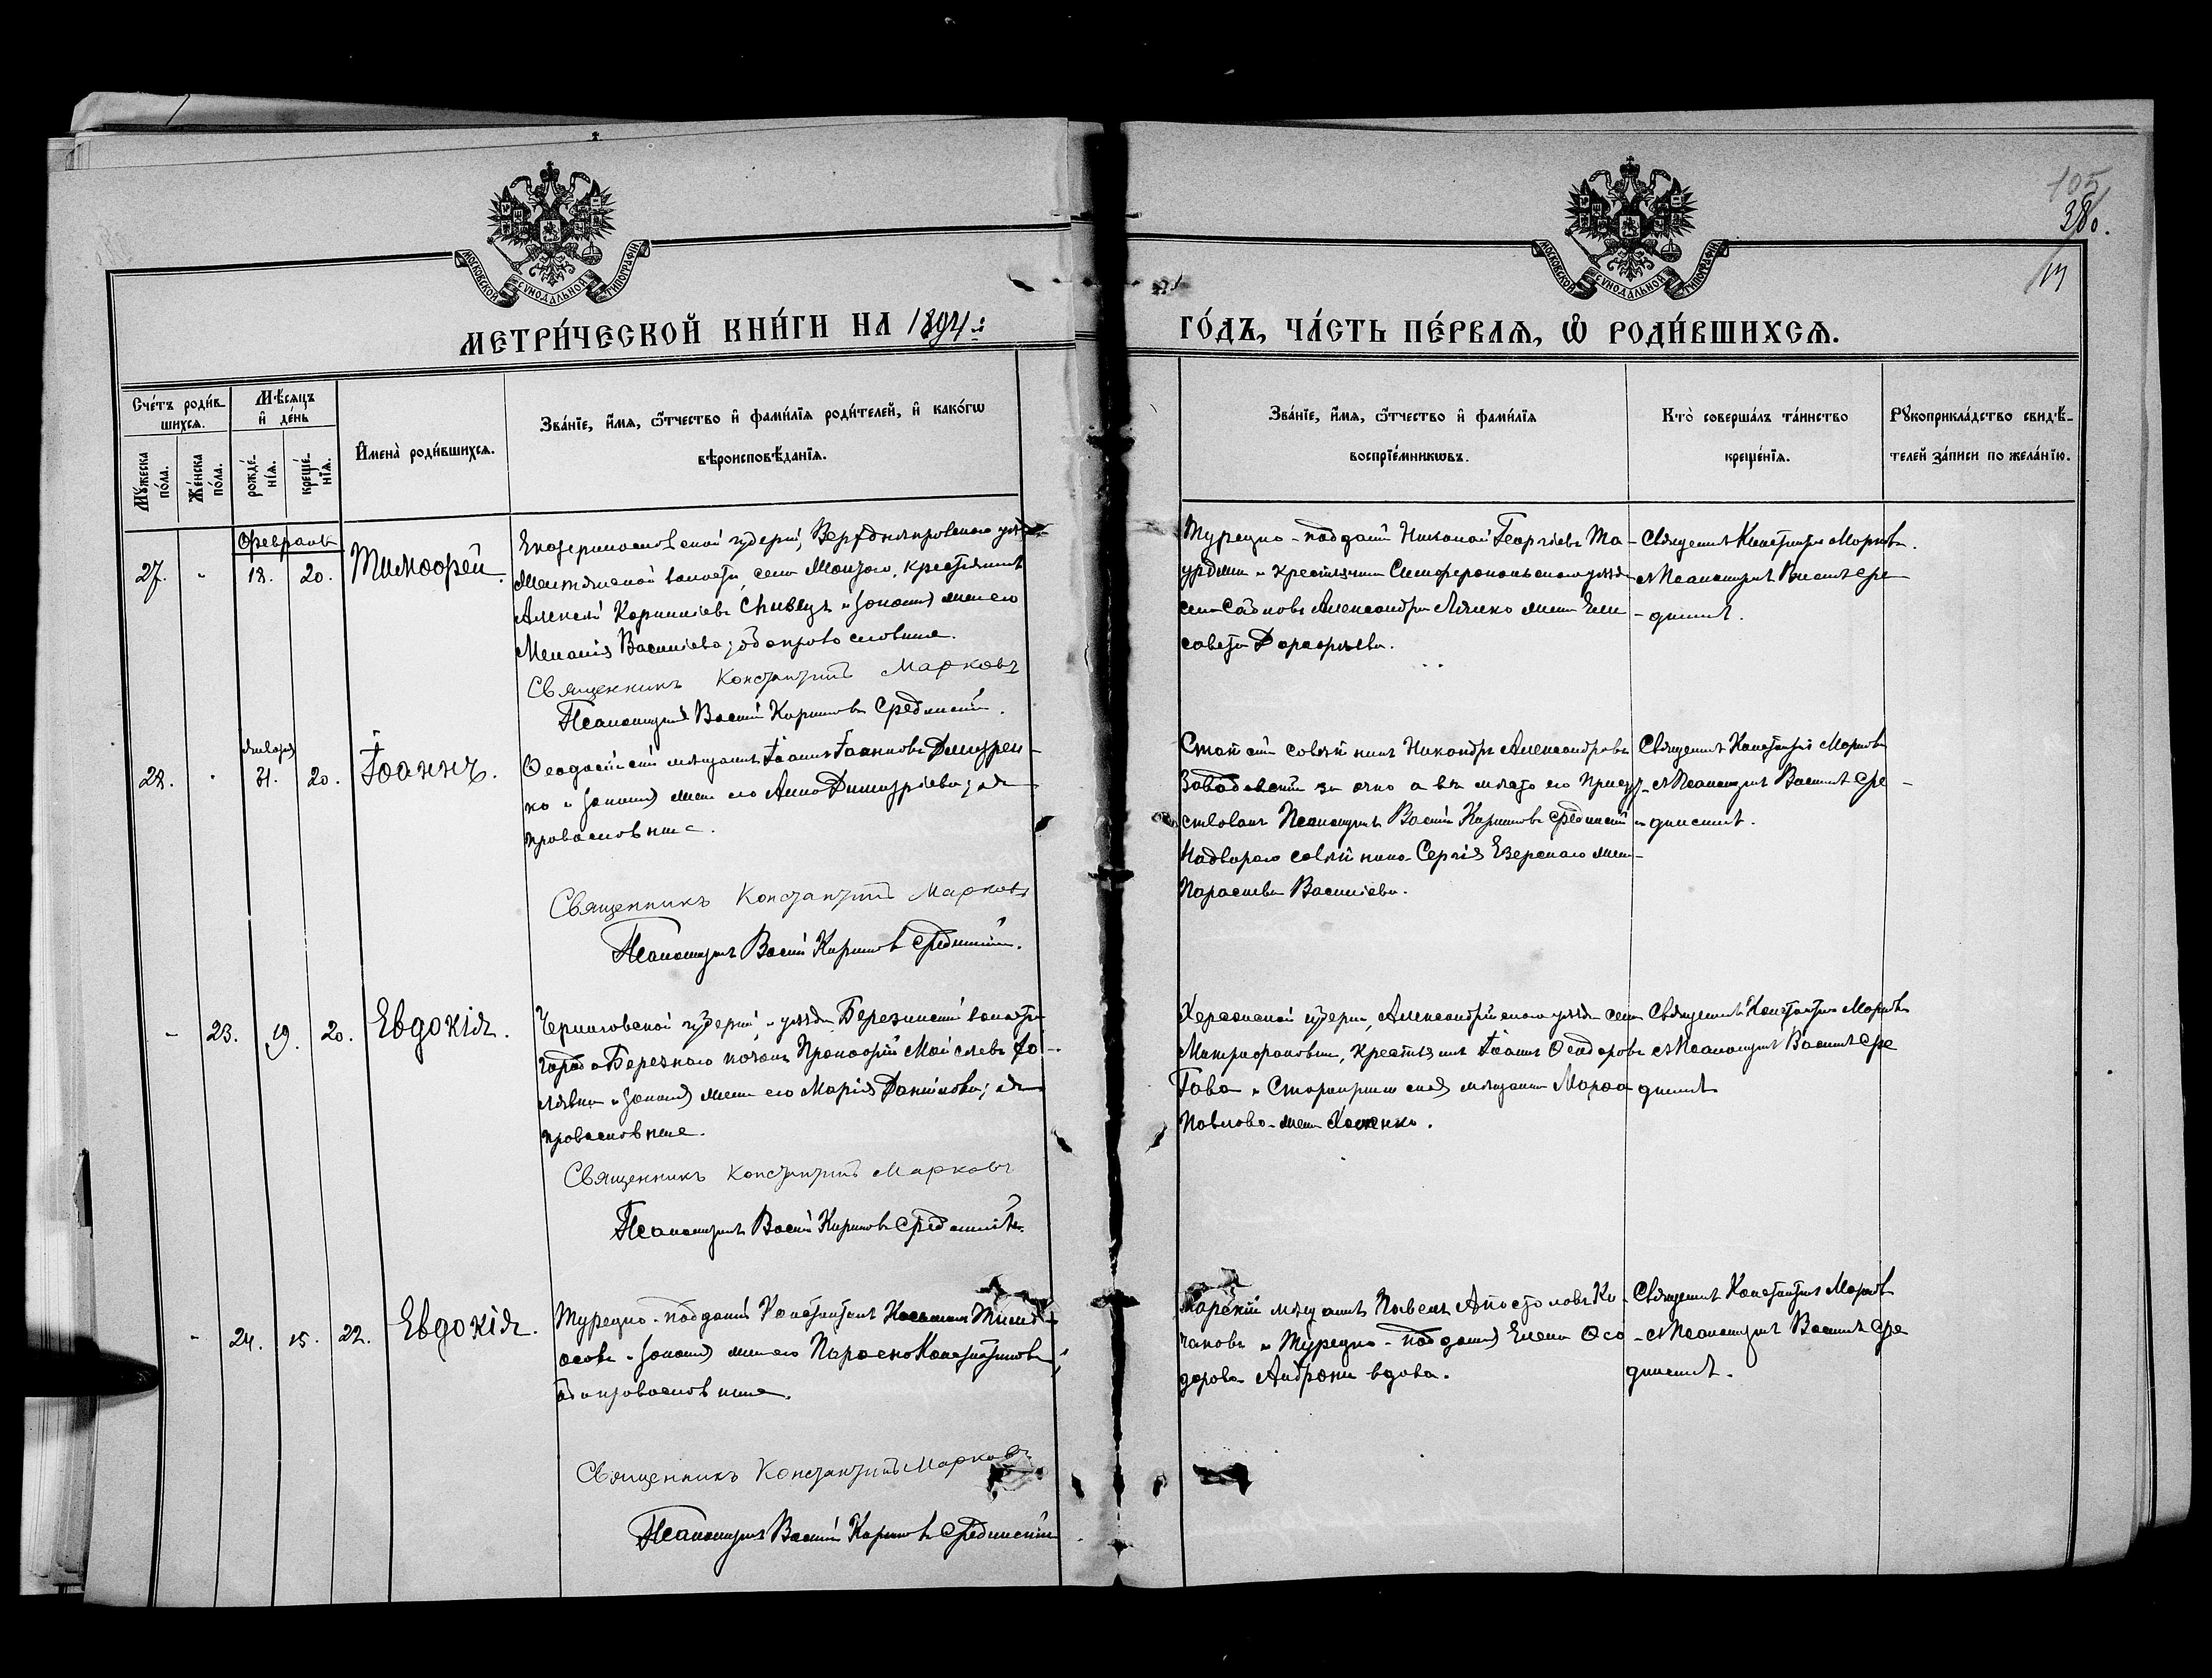 105
380.
МОСКОВСКОЙ СУНОДАЛЬНОЙ ТИПОГРАФІИ
МОСКОВСКОЙ СУНОДАЛЬНОЙ ТИПОГРАФІИ
МЕТРИ́ЧЕСКОЙ КНИ́ГИ НА 1894
ГО́ДЪ, ЧА́СТЬ ПЕ́РВАѦ, Ѽ РОДИ́ВШИХСѦ.
Сче́тъ роди́в-
шихсѧ.
Мꙋ́жеска по́ла.
Же́нска по́ла.
Мѣ́сѧцъ
и҆ де́нь
рожде́-
нїѧ.
креще́-
нїѧ.
И҆мена̀ роди́вшихсѧ.
Зва́нїе, и҆́мѧ, ѻ҆́тчество и҆ фами́лїѧ роди́телей, и҆ како́гѡ
вѣроисповѣ́данїѧ.
Зва́нїе, и҆́мѧ, ѻ҆́тчество и҆ фами́лїѧ
воспрїе́мникѡвъ.
Кто̀ совершалъ та́инство
креще́нїѧ.
Рꙋкоприкла́дство свидѣ́-
телей за́писи по жела́нїю.
Февраль
27.
18.
20.
Тимофей.
Екатеринославской губерніи, Верхднѣпровскаго уѣз
волости, села крестьянинъ
Алексѣй Корниліевъ Швецъ и законная жена его
Меланія Васильева; оба православные.
Священникъ Константинъ Марковъ
Псаломщикъ Василій Кириловъ Срединскій.
Турецко-подданый Николай Георгіевъ Та-
и крестьянина Симферопольскаго уѣзда
села Александра Лячко жена Ели-
савета Дорофѣева.
Священникъ Константинъ Марковъ
съ Псаломщикъ Василій Сре-
динскій.
января
28.
31.
20.
Іоаннъ.
Ѳеодосійскій мѣщанинъ Іоаннъ Іоанновъ Дмитрен-
ко и законная жена его Анна Димитріева; оба
православные.
Священникъ Константинъ Марковъ
Псаломщикъ Василій Кириловъ Срединскій.
Статскій совѣтникъ Никандръ Александровъ
Завадовскій за очно а въ мѣсто его присут-
ствовалъ Псаломщикъ Василій Кириловъ Срединскій и
Надворнаго совѣтника Сергія Езерскаго жена
Параскева Васильева.
Священникъ Константинъ Марковъ
съ Псаломщикъ Василій Сре-
динскій.
23.
19.
20.
Евдокія.
Черниговской губерніи, и уѣзда Березинской волости
города Березнаго казакъ Прокофій
и законная жена его Марія Даніилова; оба
православные.
Священникъ Константинъ Марковъ
Псаломщикъ Василій Кириловъ Срединскій.
Херсонской губерніи, Александрійскаго уѣзда села
Митрофановки, крестьянинъ Іоаннъ Ѳеодоровъ
Гава и мѣщанина Марѳа
Павлова жена
Священникъ Константинъ Марковъ
съ Псаломщикъ Василій Сре
динскій
24.
15.
22.
Евдокія.
Турецко-подданый Константинъ
и законная жена его Параскева Константинова;
оба православные.
Священникъ Константинъ Марковъ
Псаломщикъ Василій Кириловъ Срединскій
мѣщанинъ Павелъ Апостоловъ Ко-
чановъ и Турецко-подданая Елена Ѳео-
дорова вдова.
Священникъ Константинъ Марковъ
съ Псаломщикъ Василій Сре
динскій.